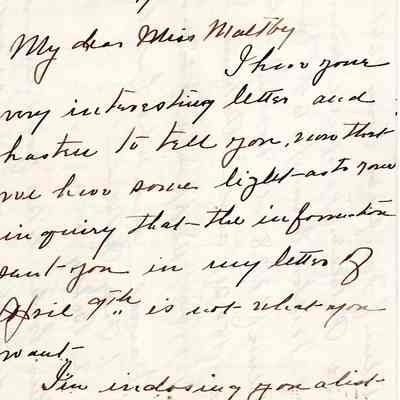 My dear Miss Maltby
I have your
very interesting letter and
hasten to tell you, now that
we have some light as to your
inquiry that the information
sent you in my letter of
April 9th is not what you
want.
I'm inclosing you a list